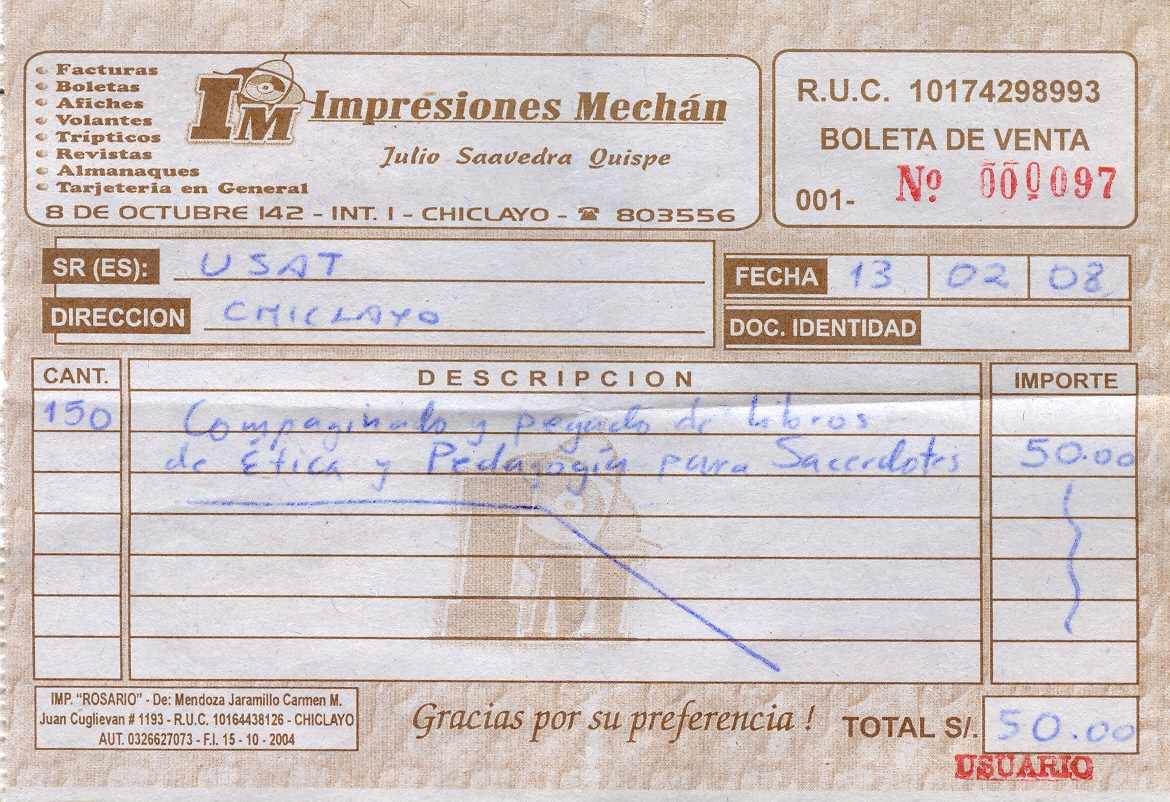 Facturas
Boletas
Afiches
Volantes
Trípticos
Revistas
Almanaques
Tarjetería en General
IM
Impresiones Mechán
Julio Saavedra Quispe
8 DE OCTUBRE 142 - INT. I - CHICLAYO - ☎ 803556
R.U.C. 10174298993
BOLETA DE VENTA
001- Nº 000097
SR (ES): USAT
DIRECCION CHICLAYO
FECHA 13 02 08
DOC. IDENTIDAD
CANT. DESCRIPCION IMPORTE
150 Compaginado y pegado de libros
de Ética y Pedagogía para Sacerdotes 50.00
IMP. "ROSARIO" - De: Mendoza Jaramillo Carmen M.
Juan Cuglievan # 1193 - R.U.C. 10164438126 - CHICLAYO
AUT. 0326627073 - F.I. 15 - 10 - 2004
Gracias por su preferencia !
TOTAL S/. 50.00
USUARIO